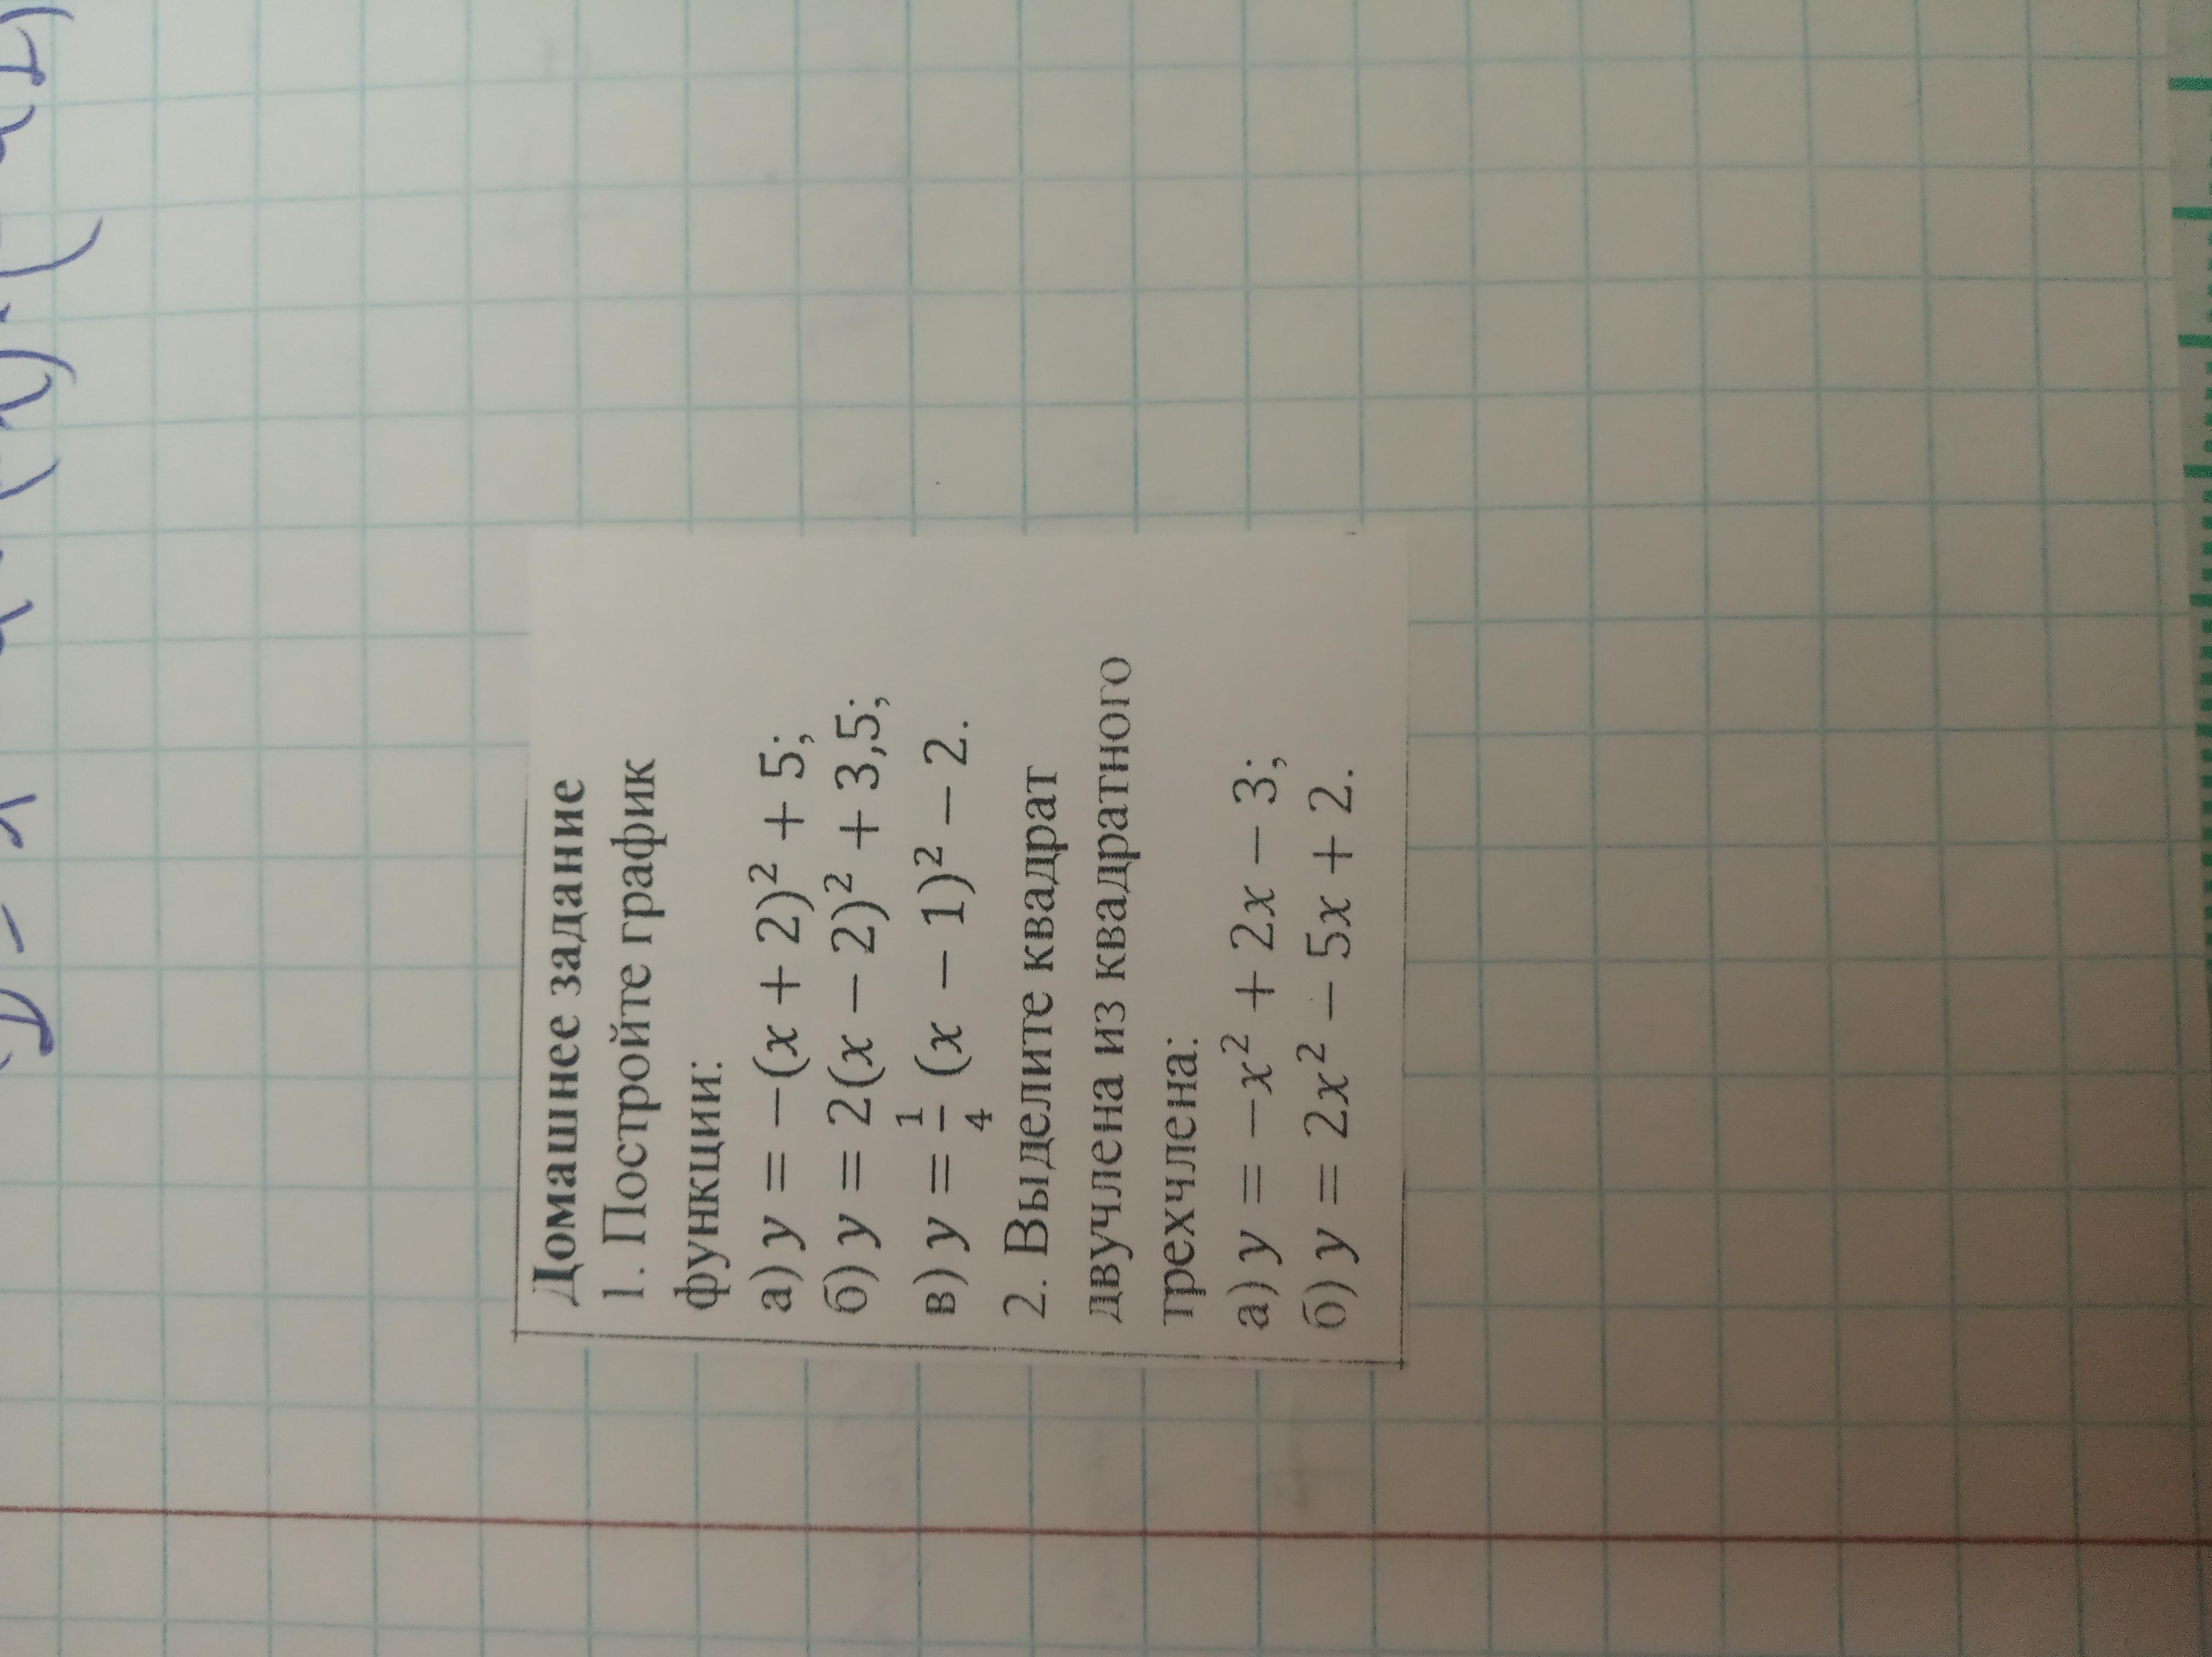 Домашнее задание
1. Постройте график
функции:
а) y = −(x + 2)² + 5;
б) y = 2(x − 2)² + 3,5;
в) y = 1/4 (x − 1)² − 2.
2. Выделите квадрат
двучлена из квадратного
трехчлена:
а) y = −x² + 2x − 3;
б) y = 2x² − 5x + 2.